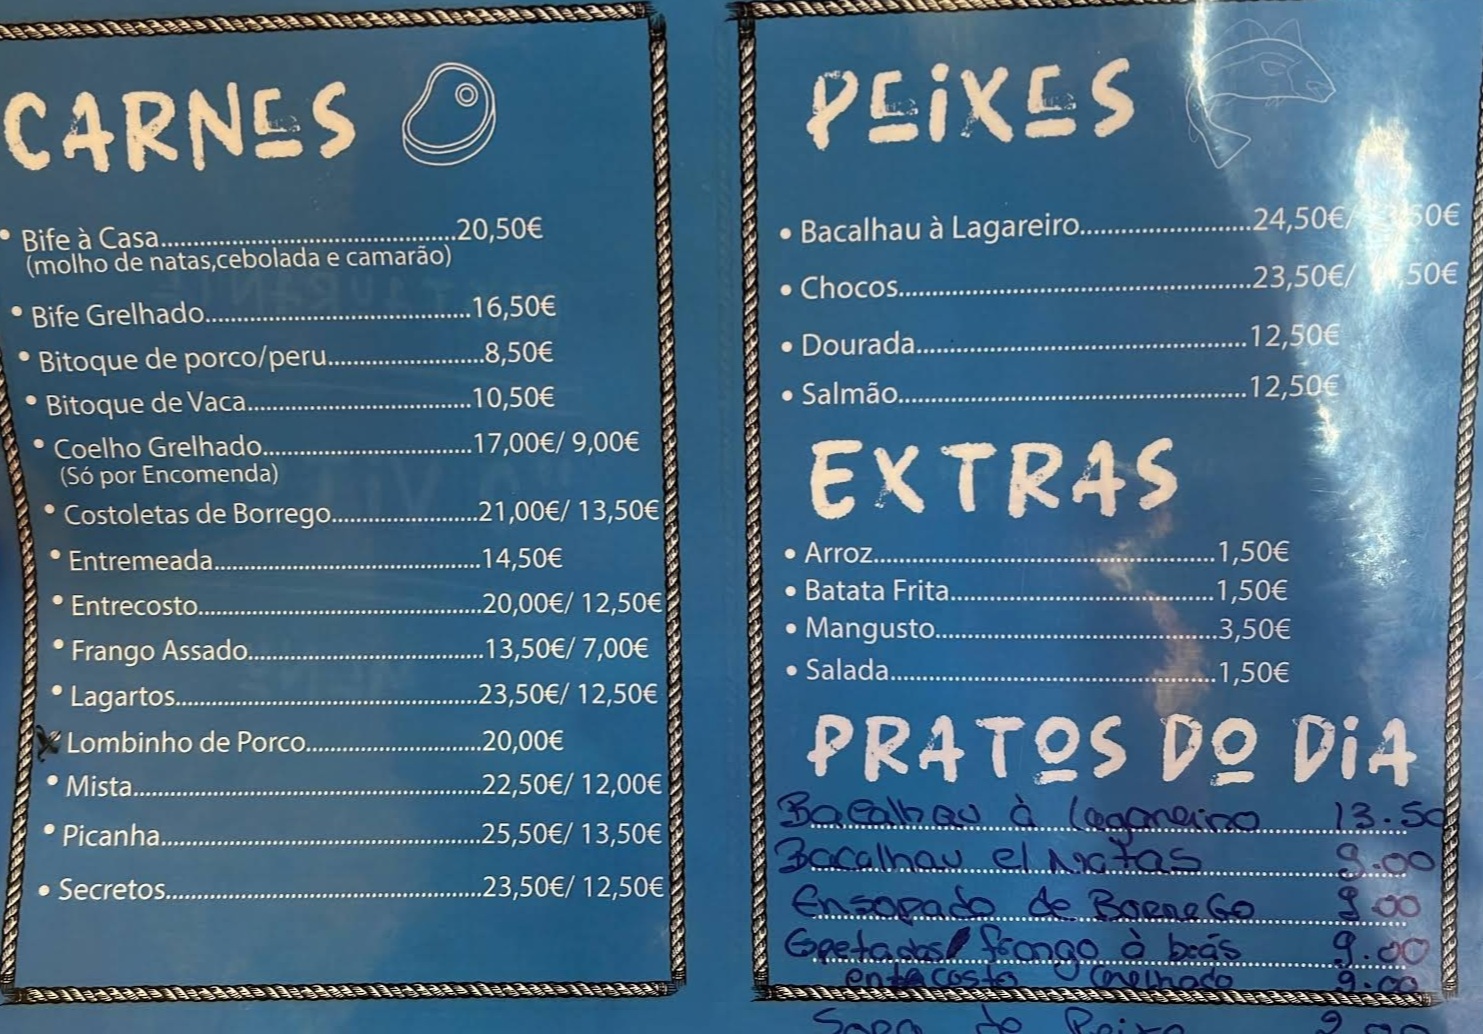 CARNES
Bife à Casa 20,50€
(molho de natas,cebolada e camarão)
Bife Grelhado 16,50€
Bitoque de porco/peru 8,50€
Bitoque de Vaca 10,50€
Coelho Grelhado 17,00€/ 9,00€
(Só por Encomenda)
Costoletas de Borrego 21,00€/ 13,50€
Entremeada 14,50€
Entrecosto 20,00€/ 12,50€
Frango Assado 13,50€/ 7,00€
Lagartos 23,50€/ 12,50€
Lombinho de Porco 20,00€
Mista 22,50€/ 12,00€
Picanha 25,50€/ 13,50€
Secretos 23,50€/ 12,50€
PEiXES
Bacalhau à Lagareiro 24,50€/
Chocos 23,50€/
Dourada 12,50€
Salmão 12,50€
EXTRAS
Arroz 1,50€
Batata Frita 1,50€
Mangusto 3,50€
Salada 1,50€
PRATOS DO DiA
Bacalhau à Lagareiro 13.50
Bacalhau c/ Natas 9.00
Ensopado de Borrego 9.00
Espetadas / frango à brás 9.00
entrecosto Grelhado 9.00
Sopa de Peixe